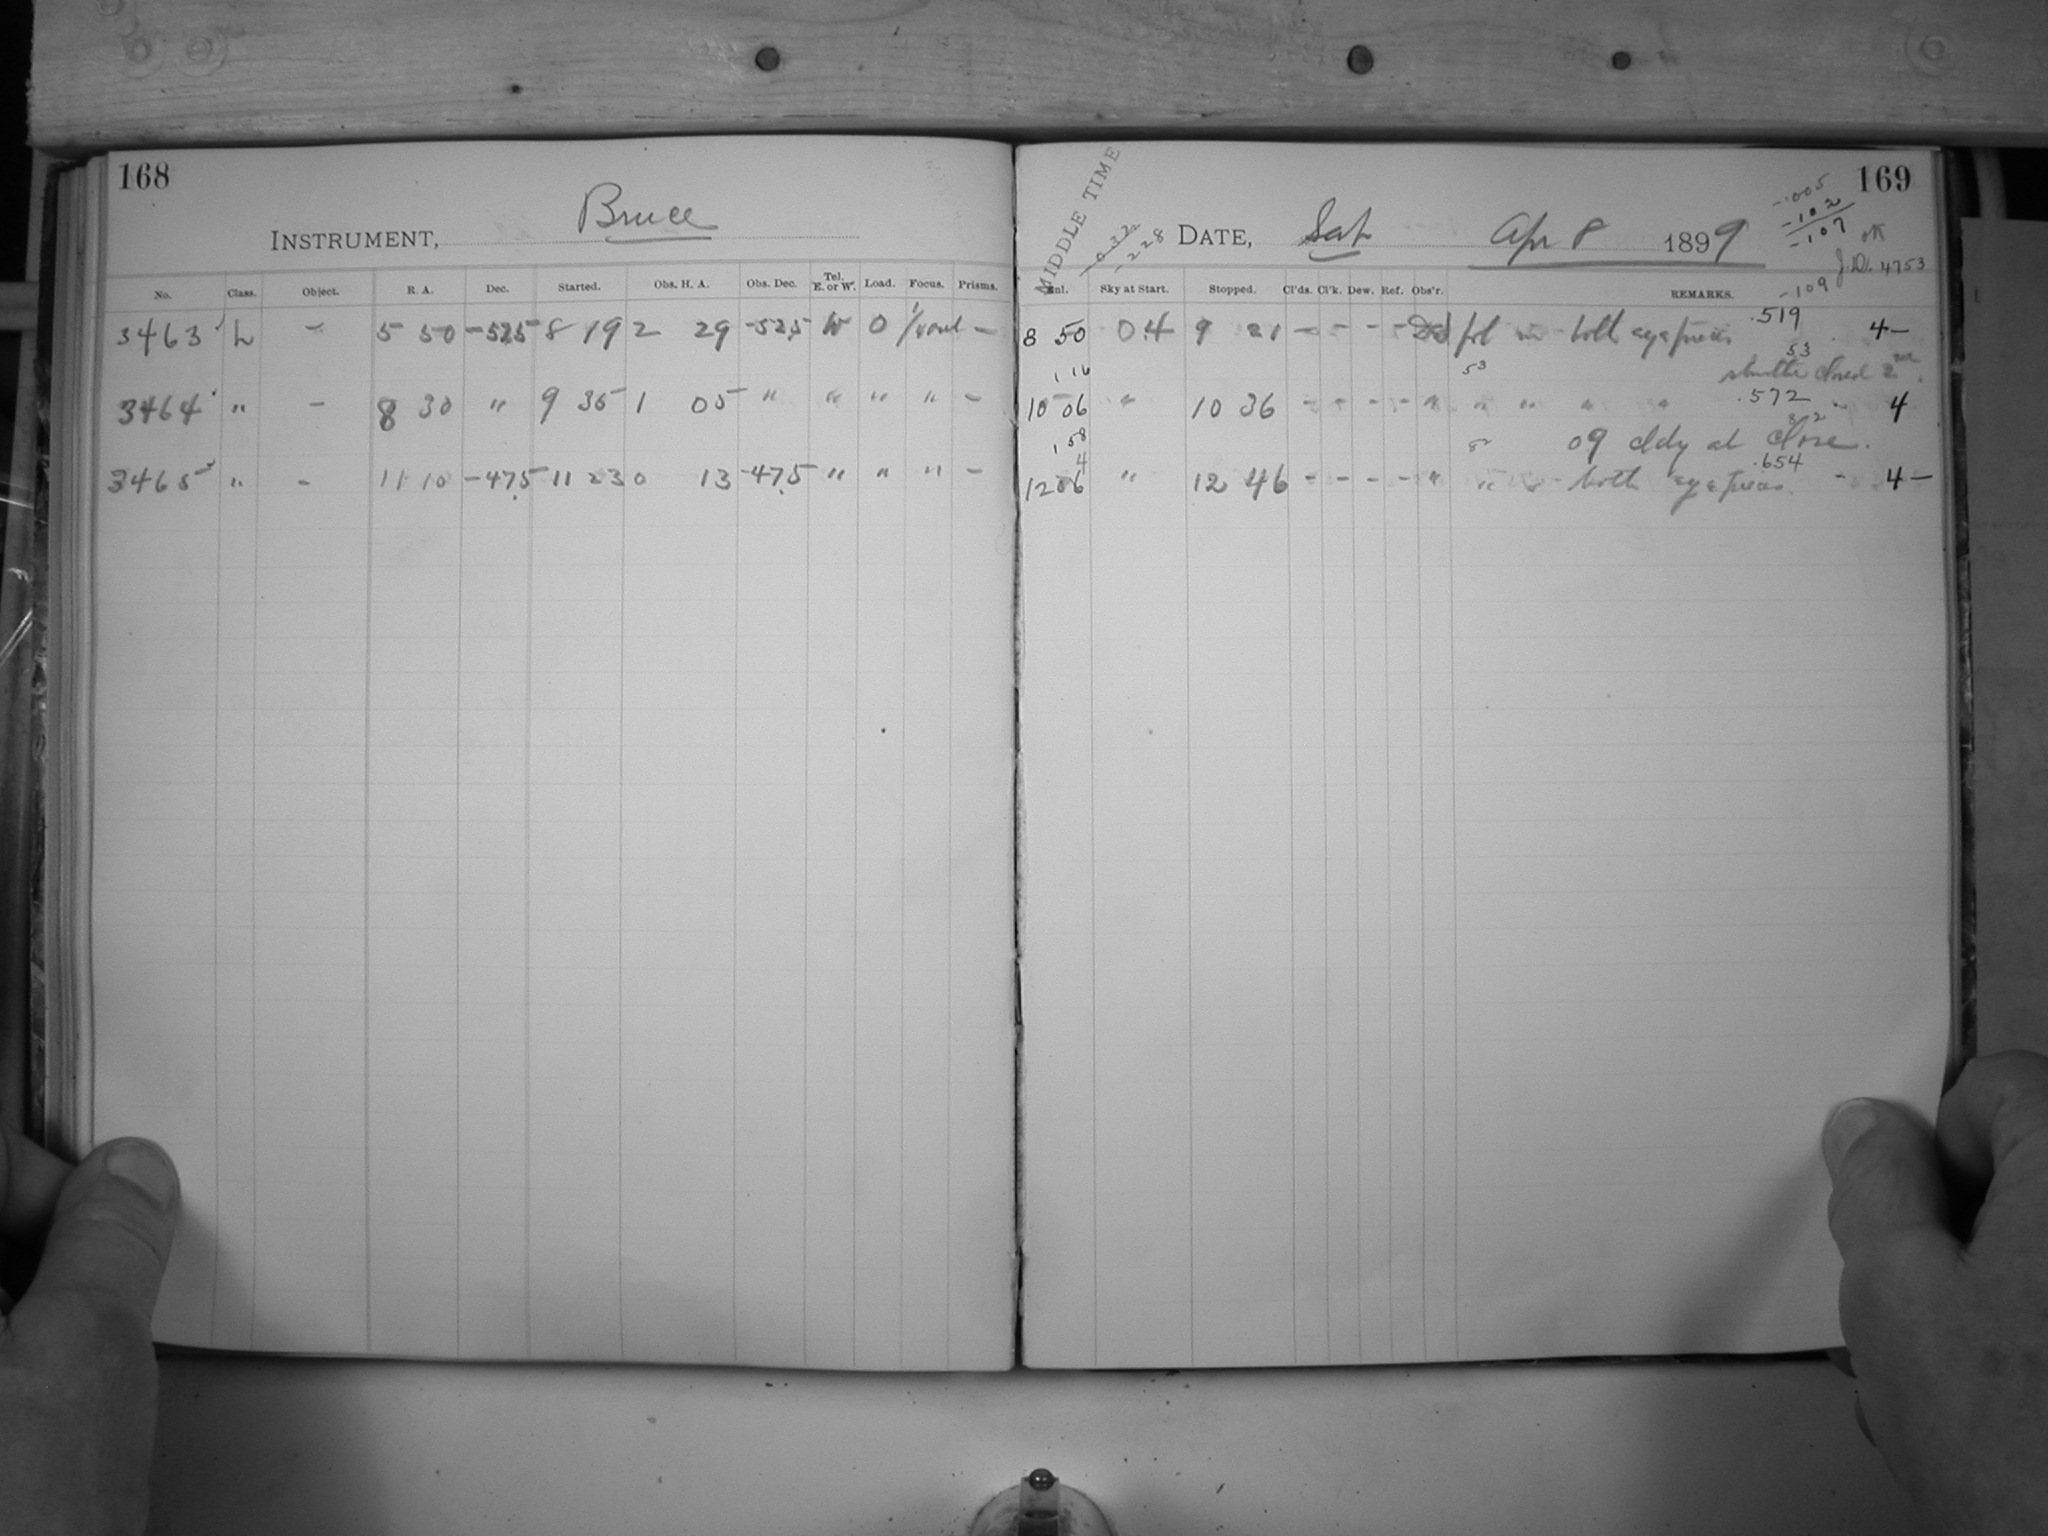 168
Bruce
INSTRUMENT,
No. Class. Object. R. A. Dec. Started. Obs. H. A. Obs. Dec. Tel. E. or W. Load. Focus. Prisms.
3463 L - 5 50 -52.5 8 19 2 29 -52.5 W 0 -
3464 " - 8 30 " 9 35 1 05 " " " " -
3465 " - 11 10 -47.5 11 23 0 13 -47.5 " " " -
169
MIDDLE TIME
-.032
-.228
DATE, Sat Apr 8 1899
-.005
-.102
-.107
OK
J.D. 4753
-109
Sky at Start. Stopped. Cl'ds. Cl'k. Dew. Ref. Obs'r. REMARKS.
8 50 04 9 21 - - - - fol both eyepieces .519 4-
53
1 16 53 shutter closed
10 06 " 10 36 - - - - " " " " " .572 4
82
1 58 82 09 cldy at close.
4 .654
12 06 " 12 46 - - - - " " - both eyepieces - 4-